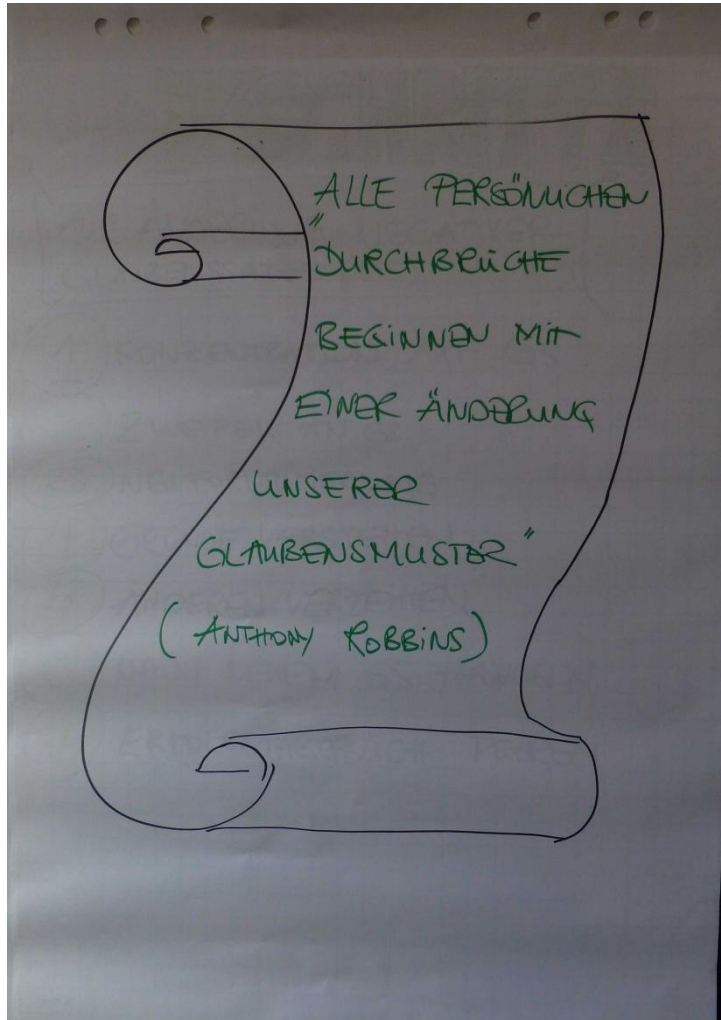 ALLE PERSÖNLICHEN
"DURCHBRÜCHE
BEGINNEN MIT
EINER ÄNDERUNG
UNSERER
GLAUBENSMUSTER"
(ANTHONY ROBBINS)